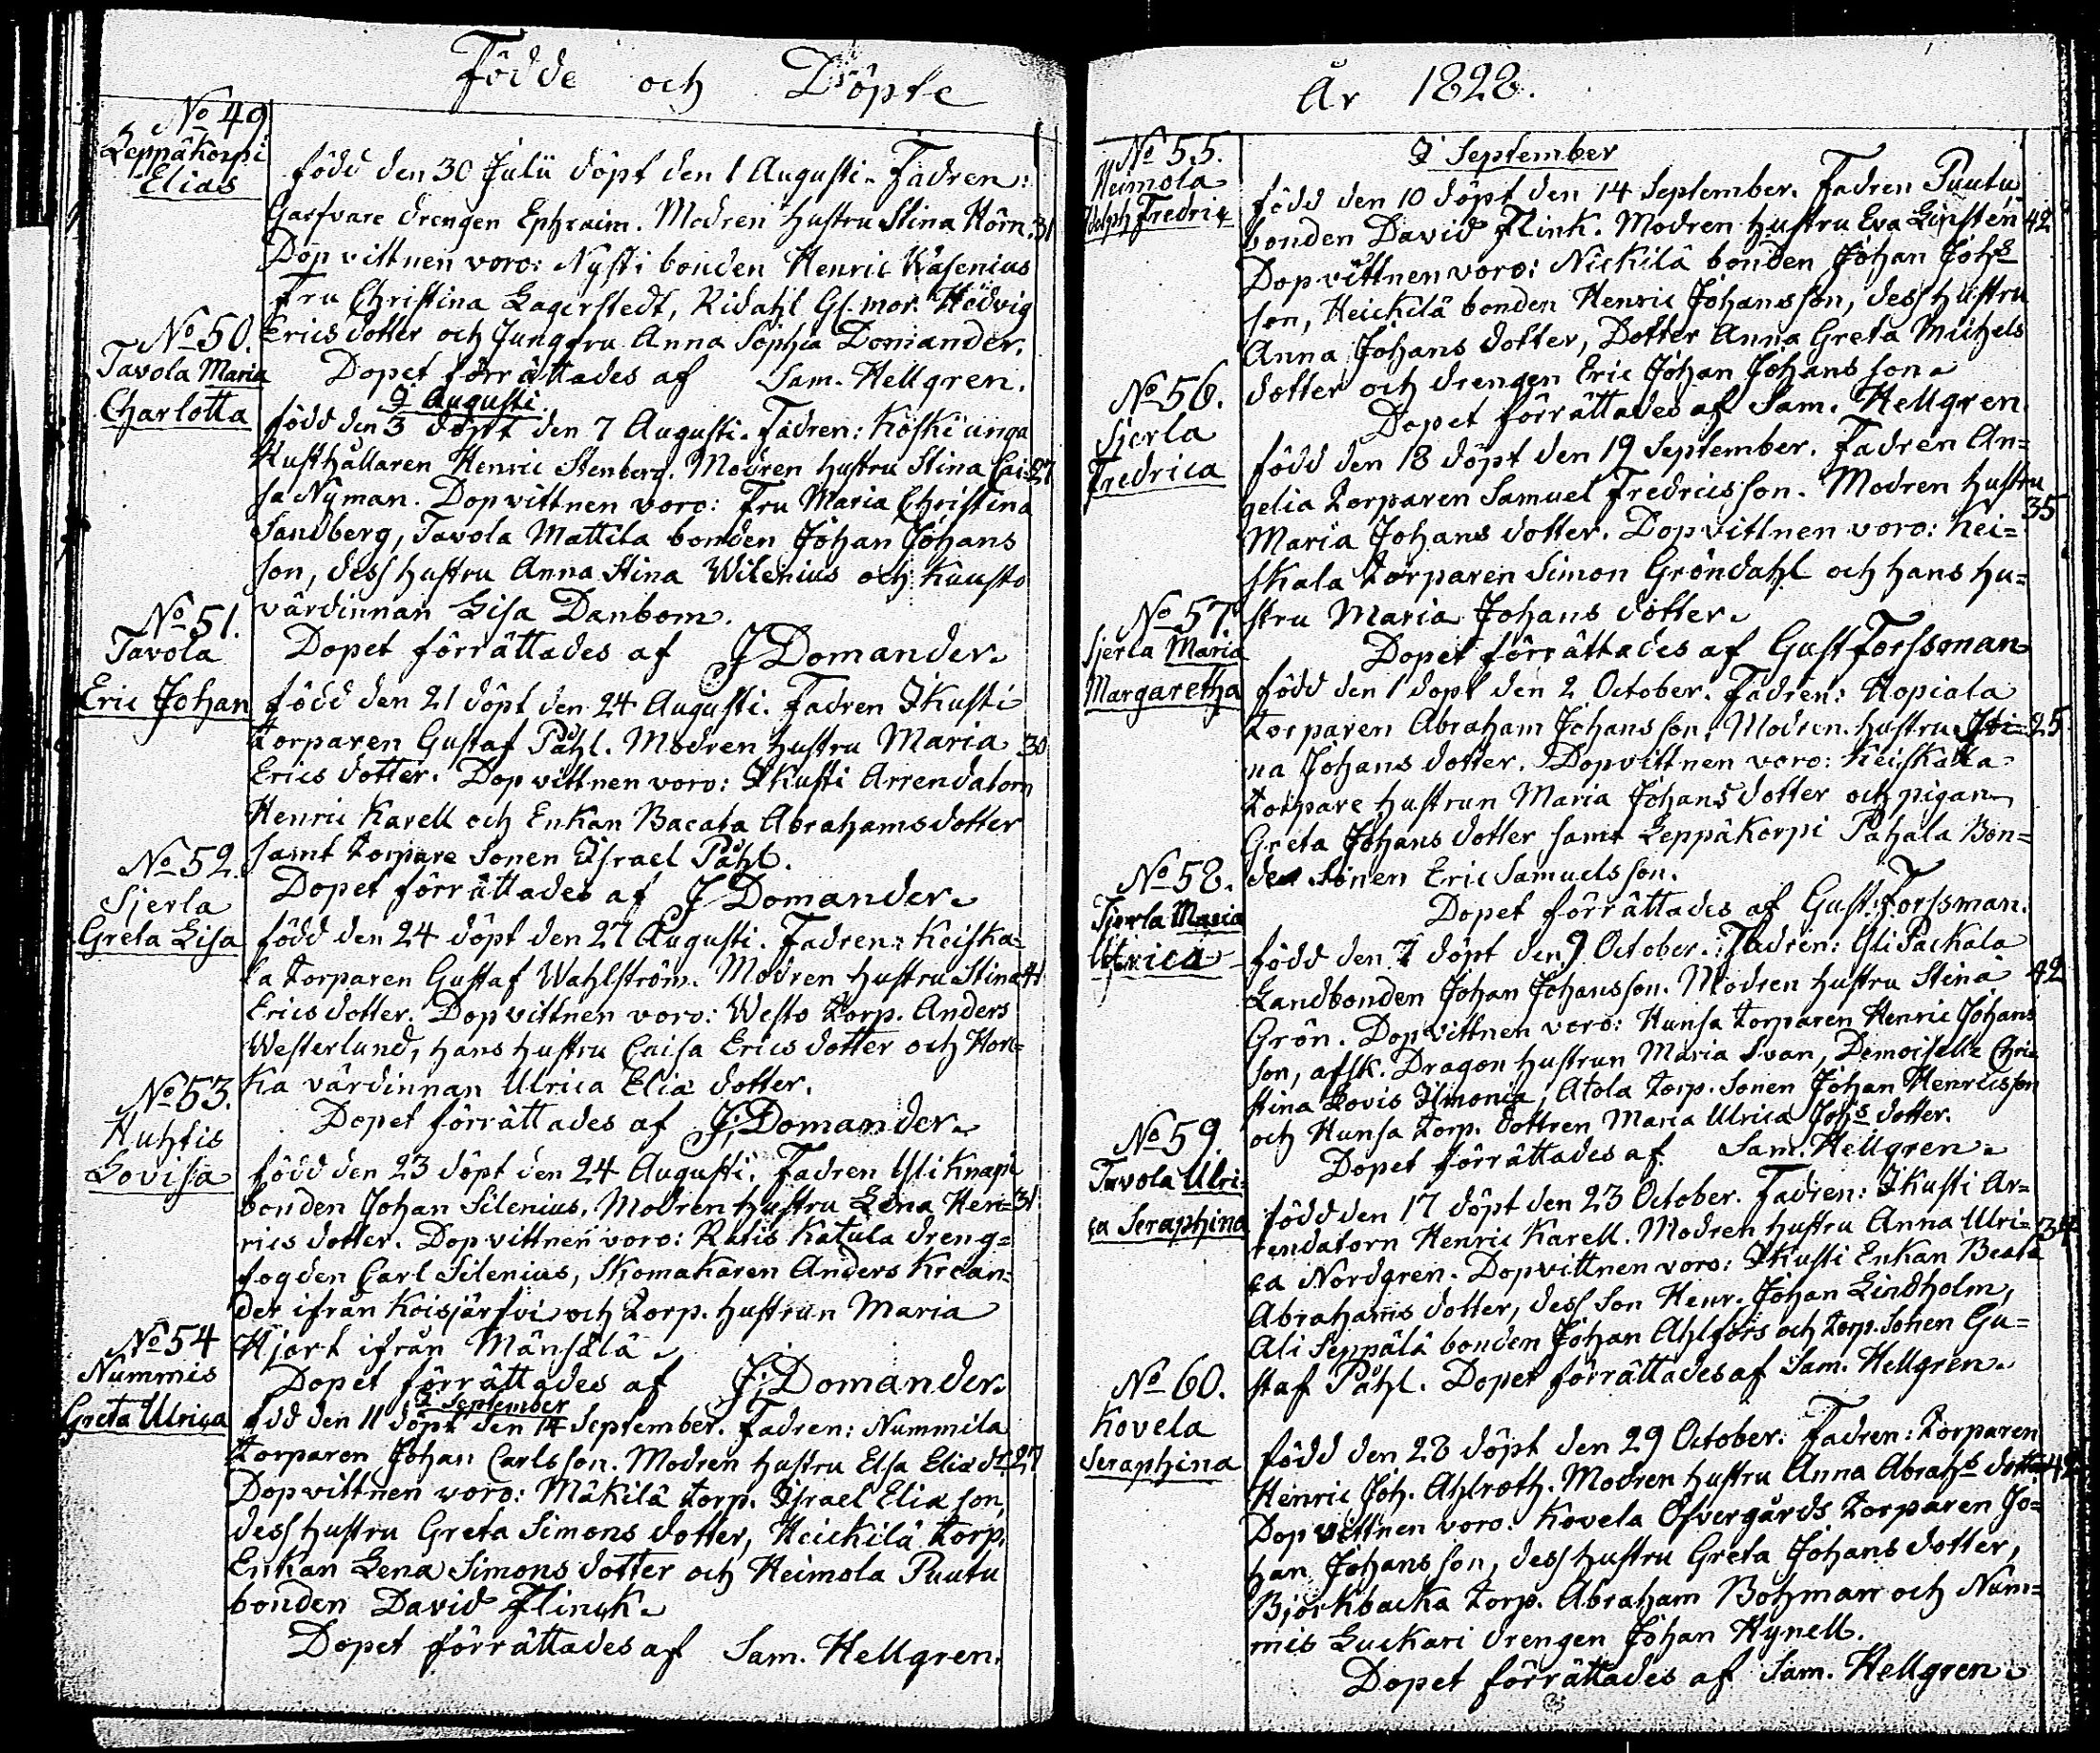 Födde och Döpte
No 49
Leppäkorpi
Elias
född den 30 Julii döpt den 1 Augusti. Fadren:
Garfvare drengen Ephraim. Modren hustru Stina Hörn. 31
Dop vittnen voro: Nysti bonden Henric Wasenius
Fru Christina Lagerstedt, Ridahl Gl. mor. Hedvig
Ericsdotter och Jungfru Anna Sophia Domander.
Dopet förrättades af Sam. Hellgren.
No 50.
Tavola Maria
Charlotta
I Augusti
född den 3 döpt den 7 Augusti. Fadren: Koski unga
Rusthållaren Henric Stenberg. Modren hustru Stina Cai- 27
sa Nyman. Dopvittnen voro: Fru Maria Christina
Sandberg, Tavola Mattila bonden Johan Johans
son, dess hustru Anna Stina Wilenius och Kuusto
värdinnan Lisa Danbom.
Dopet förrättades af J Domander.
No 51.
Tavola
Eric Johan
född den 21 döpt den 24 Augusti. Fadren Ikusti
torparen Gustaf Påhl. Modren hustru Maria 30
Ericsdotter. Dopvittnen voro: Ikusti Arrendatorn
Henric Karell och Enkan Bacata Abrahamsdotter
samt torpare Sonen Israel Påhl.
Dopet förrättades af J Domander.
No 52.
Sjerla
Greta Lisa
född den 24 döpt den 27 Augusti. Fadren: Keiska-
la torparen Gustaf Wahlström. Modren hustru Stina 41
Ericsdotter. Dopvittnen voro: Westo torp. Anders
Westerlund, hans hustru Caisa Ericsdotter och Hon-
ka värdinnan Ulrica Elia dotter.
Dopet förrättades af J. Domander.
No 53.
Huhtis
Lovisa
född den 23 döpt den 24 Augusti. Fadren Yli Knapi
bonden Johan Silenius. Modren hustru Lena Hen- 31
rics dotter. Dopvittnen voro: Retis Katula dreng-
fogden Carl Silenius, Skomakaren Anders Krean-
der ifrån Koisjärfvi och torp. hustrun Maria
Hjort ifrån Mänsälä.
Dopet förrättades af J. Domander.
No 54
Nummis
Greta Ulrica
I September
född den 11 döpt den 14 September. Fadren: Nummila
torparen Johan Carlsson. Modren hustru Elsa Elia dr. 27
Dopvittnen voro: Mäkilä torp. Israel Elia son,
dess hustru Greta Simons dotter, Heickilä torp.
Enkan Lena Simons dotter och Heimola Puutu
bonden David Flinck.
Dopet förrättades af Sam. Hellgren.
År 1828.
No 55.
Heimola
Adolph Fredric
I September
född den 10 döpt den 14 September. Fadren Puutu
bonden David Flink. Modren hustru Eva Ginsten 42
Dopvittnen voro: Nickilä bonden Johan Johs
son, Heickilä bonden Henric Johansson, dess hustru
Anna Johans dotter, Dotter Anna Greta Michels
dotter och drengen Eric Johan Johans son.
Dopet förrättades af Sam. Hellgren.
No 56.
Sjerla
Fredrica
född den 18 döpt den 19 September. Fadren An-
gelia torparen Samuel Fredricsson. Modren hustru
Maria Johans dotter. Dopvittnen voro: Kei- 35
skala torparen Simon Gröndahl och hans hu-
stru Maria Johans dotter.
Dopet förrättades af Gust Forssman
No 57
Sjerla Maria
Margaretha
född den 1 döpt den 2 October. Fadren: Hopiala
torparen Abraham Johansson. Modren hustru Sti- 25
na Johans dotter. Dopvittnen voro: Keiskala
torpare hustrun Maria Johans dotter och pigan
Greta Johans dotter samt Leppäkorpi Pahala Bon-
de Sonen Eric Samuelsson.
Dopet förrättades af Gust. Forssman.
No 58.
Sjerla Maria
Ulrica
född den 7 döpt den 9 October. Fadren: Yli Packala
Landbonden Johan Johansson. Modren hustru Stina 42
Grön. Dopvittnen voro: Hunsa torparen Henric Johans
son, afsk. Dragon hustrun Maria Svan, Demoiselle Chri
stina Lovis Ilmonia, Atola torp. Sonen Johan Henricsson
och Hunsa torp. dottren Maria Ulrica Johs dotter.
Dopet förrättades af Sam. Hellgren.
No 59.
Tavola Ulri-
ca Seraphina
född den 17 döpt den 23 October. Fadren: Ikusti Ar-
rendatorn Henric Karell. Modren hustru Anna Ulri- 34
ca Nordgren. Dopvittnen voro: Ikusti Enkan Beata
Abrahams dotter, dess son Henr. Johan Lindholm,
Ali Seppälä bonden Johan Ahlfors och torp. Sonen Gu-
staf Påhl. Dopet förrättades af Sam. Hellgren.
No 60.
Kovela
Seraphina
född den 28 döpt den 29 October. Fadren: torparen
Henric Joh. Ahlroth. Modren hustru Anna Abrahs dotter 42
Dopvittnen voro: Kovela Öfvergårds torparen Jo-
han Johansson, dess hustru Greta Johans dotter,
Björkbacka torp. Abraham Bohman och Num-
mis Luckari drengen Johan Hynell.
Dopet förrättades af Sam. Hellgren.